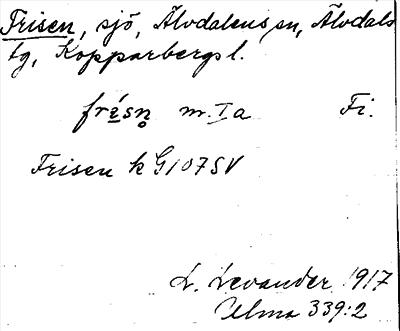 Frisen, sjö, Älvdalens sn, Älvdals
tg, Kopparbergs l.
frísn̥ m. I a Fi.
Frisen k G107SV
L. Levander 1917
Ulma 339:2